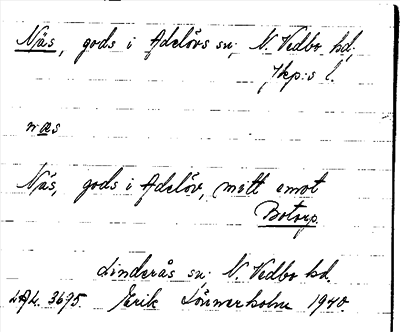 Näs, gods i Adelövs sn; N. Vedbo hd;
Jkp:s l.
næs
Näs, gods i Adelöv, mitt emot
Botorp.
Linderås sn; N. Vedbo hd.
LAL. 3695. Erik Lönnerholm 1940.